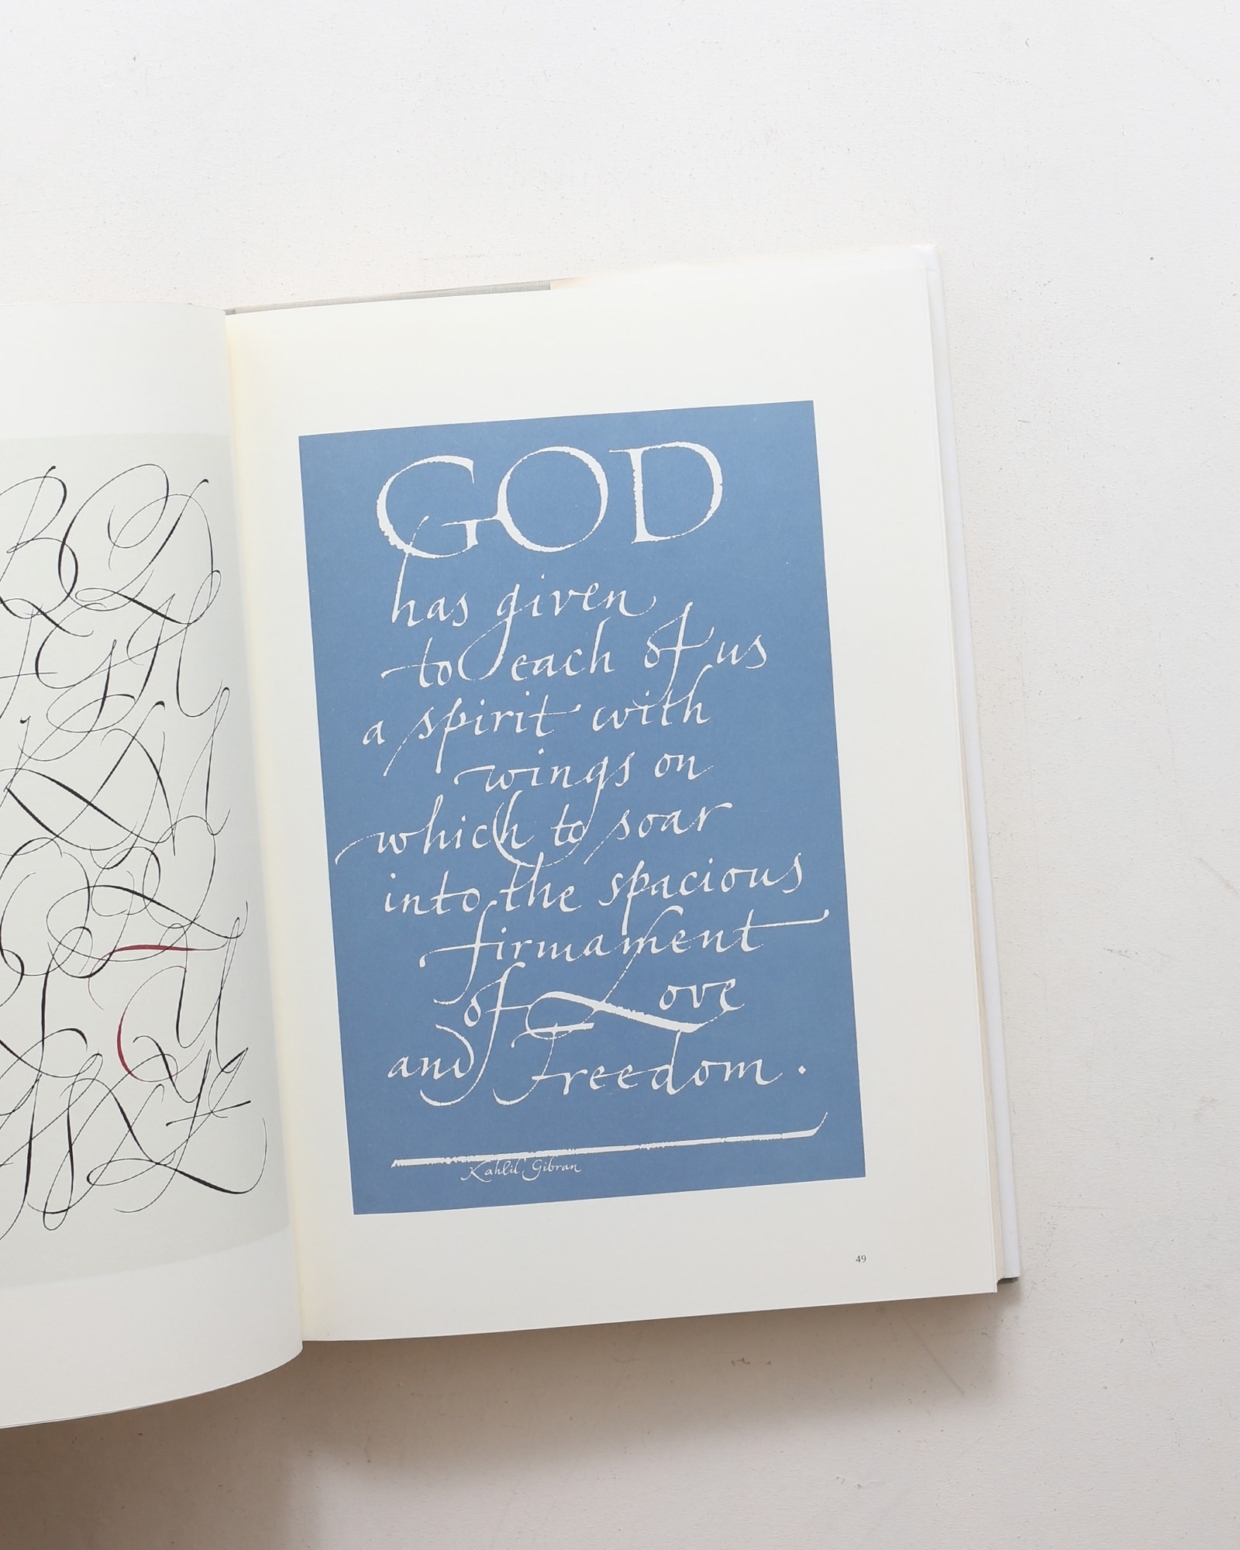 GOD
has given
to each of us
a spirit with
wings on
which to soar
into the spacious
firmament
of Love
and Freedom.
Kahlil Gibran
49